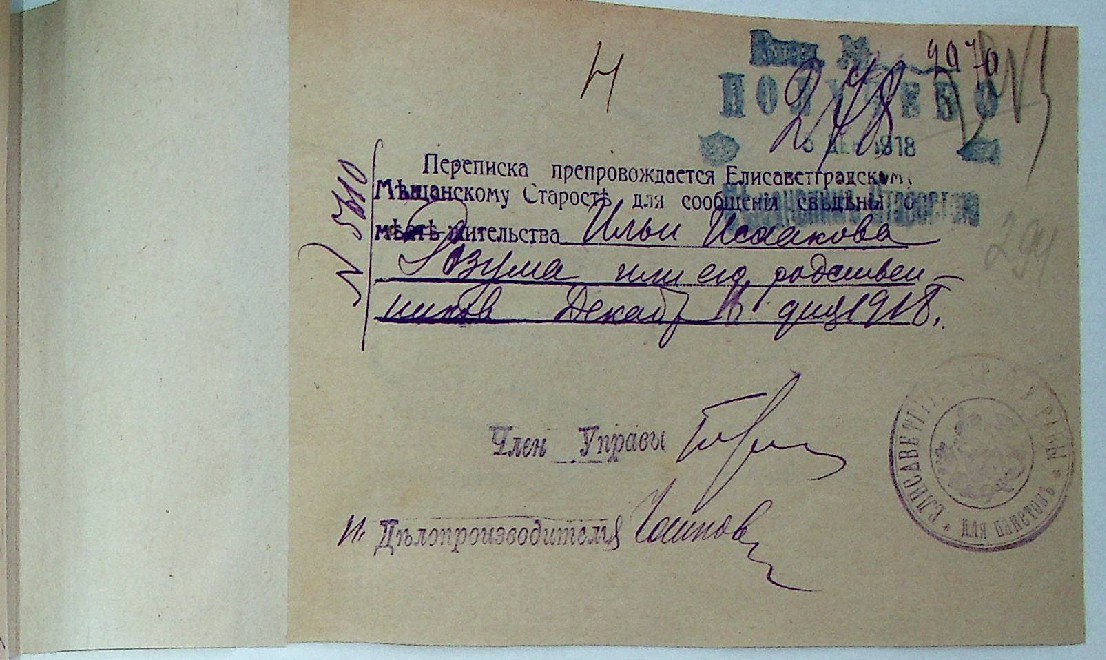 Н
Вход. № 2970
ПОЛУЧЕНО
248
1918
Переписка препровождается Елисаветградскому
Мѣщанскому Старостѣ для сообщенія свѣдѣнія о
мѣстѣ жительства Ильи Исаакова
Розума или его родствен-
никовъ Декабр 11 дня 1918 г.
N 5610
294
Член Управы
И. Дѣлопроизводителя
* ЕЛИСАВЕТГР УПРАВЫ *
ДЛЯ ПАКЕТОВЪ